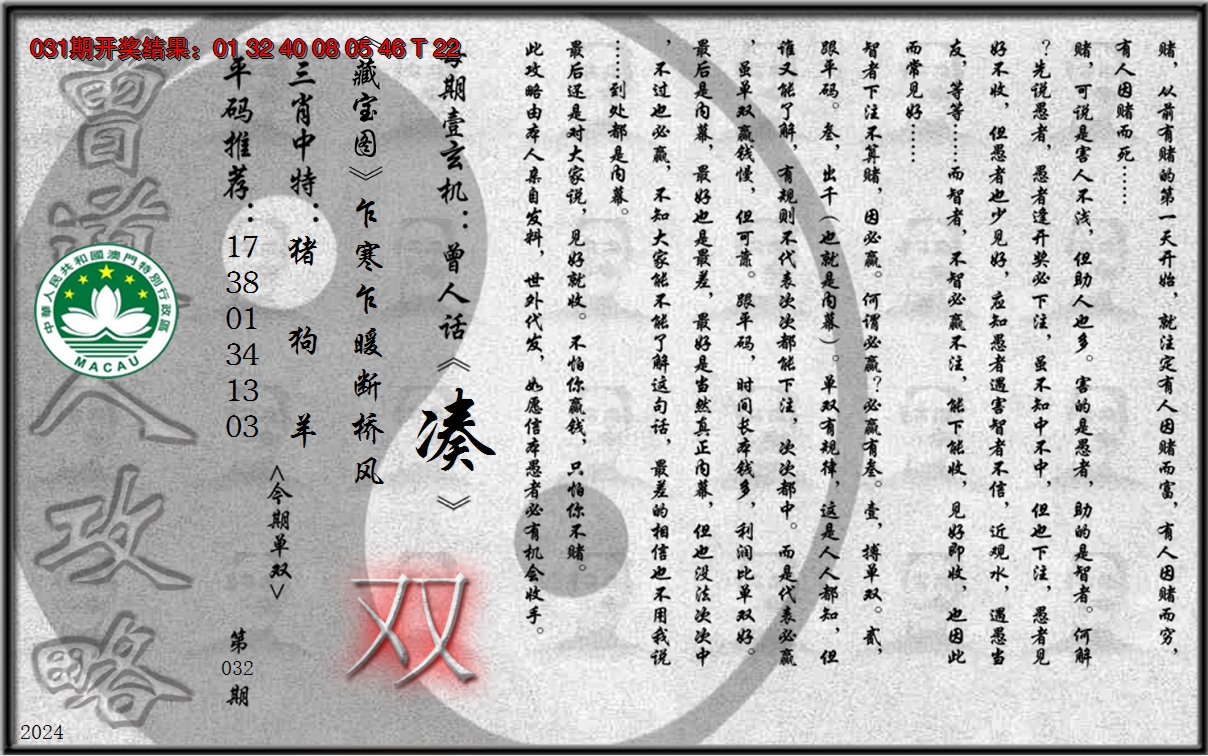 031期开奖结果：01 32 40 08 05 46 T 22
赌，从前有赌的第一天开始，就注定有人因赌而富，有人因赌而穷，
有人因赌而死……
赌，可说是害人不浅，但助人也多。害的是愚者，助的是智者。何解
？先说愚者，愚者逢开奖必下注，虽不知中不中，但也下注，愚者见
好不收，但愚者也少见好，应知愚者遇害智者不信，近观水，遇愚当
友，等等……而智者，不智必赢不注，能下能收，见好即收，也因此
而常见好……
智者下注不算赌，因必赢。何谓必赢？必赢有叁。壹，搏单双。贰，
跟平码。叁，出千（也就是内幕）。单双有规律，这是人人都知，但
谁又能了解，有规则不代表次次都能下注，次次都中。而是代表必赢
，虽单双赢钱慢，但可靠。跟平码，时间长本钱多，利润比单双好。
最后是内幕，最好也是最差，最好是当然真正内幕，但也没法次次中
，不过也必赢，不知大家能不能了解这句话，最差的相信也不用我说
……到处都是内幕。
最后还是对大家说，见好就收。不怕你赢钱，只怕你不赌。
此攻略由本人亲自发料，世外代发，如愿信本愚者必有机会收手。
每期壹玄机：曾人话《凑》
《藏宝图》乍寒乍暖断桥风
双
三肖中特：猪 狗 羊
<今期单双>
平码推荐：17 38 01 34 13 03
第032期
曾道人攻略
中華人民共和國澳門特別行政區
MACAU
2024